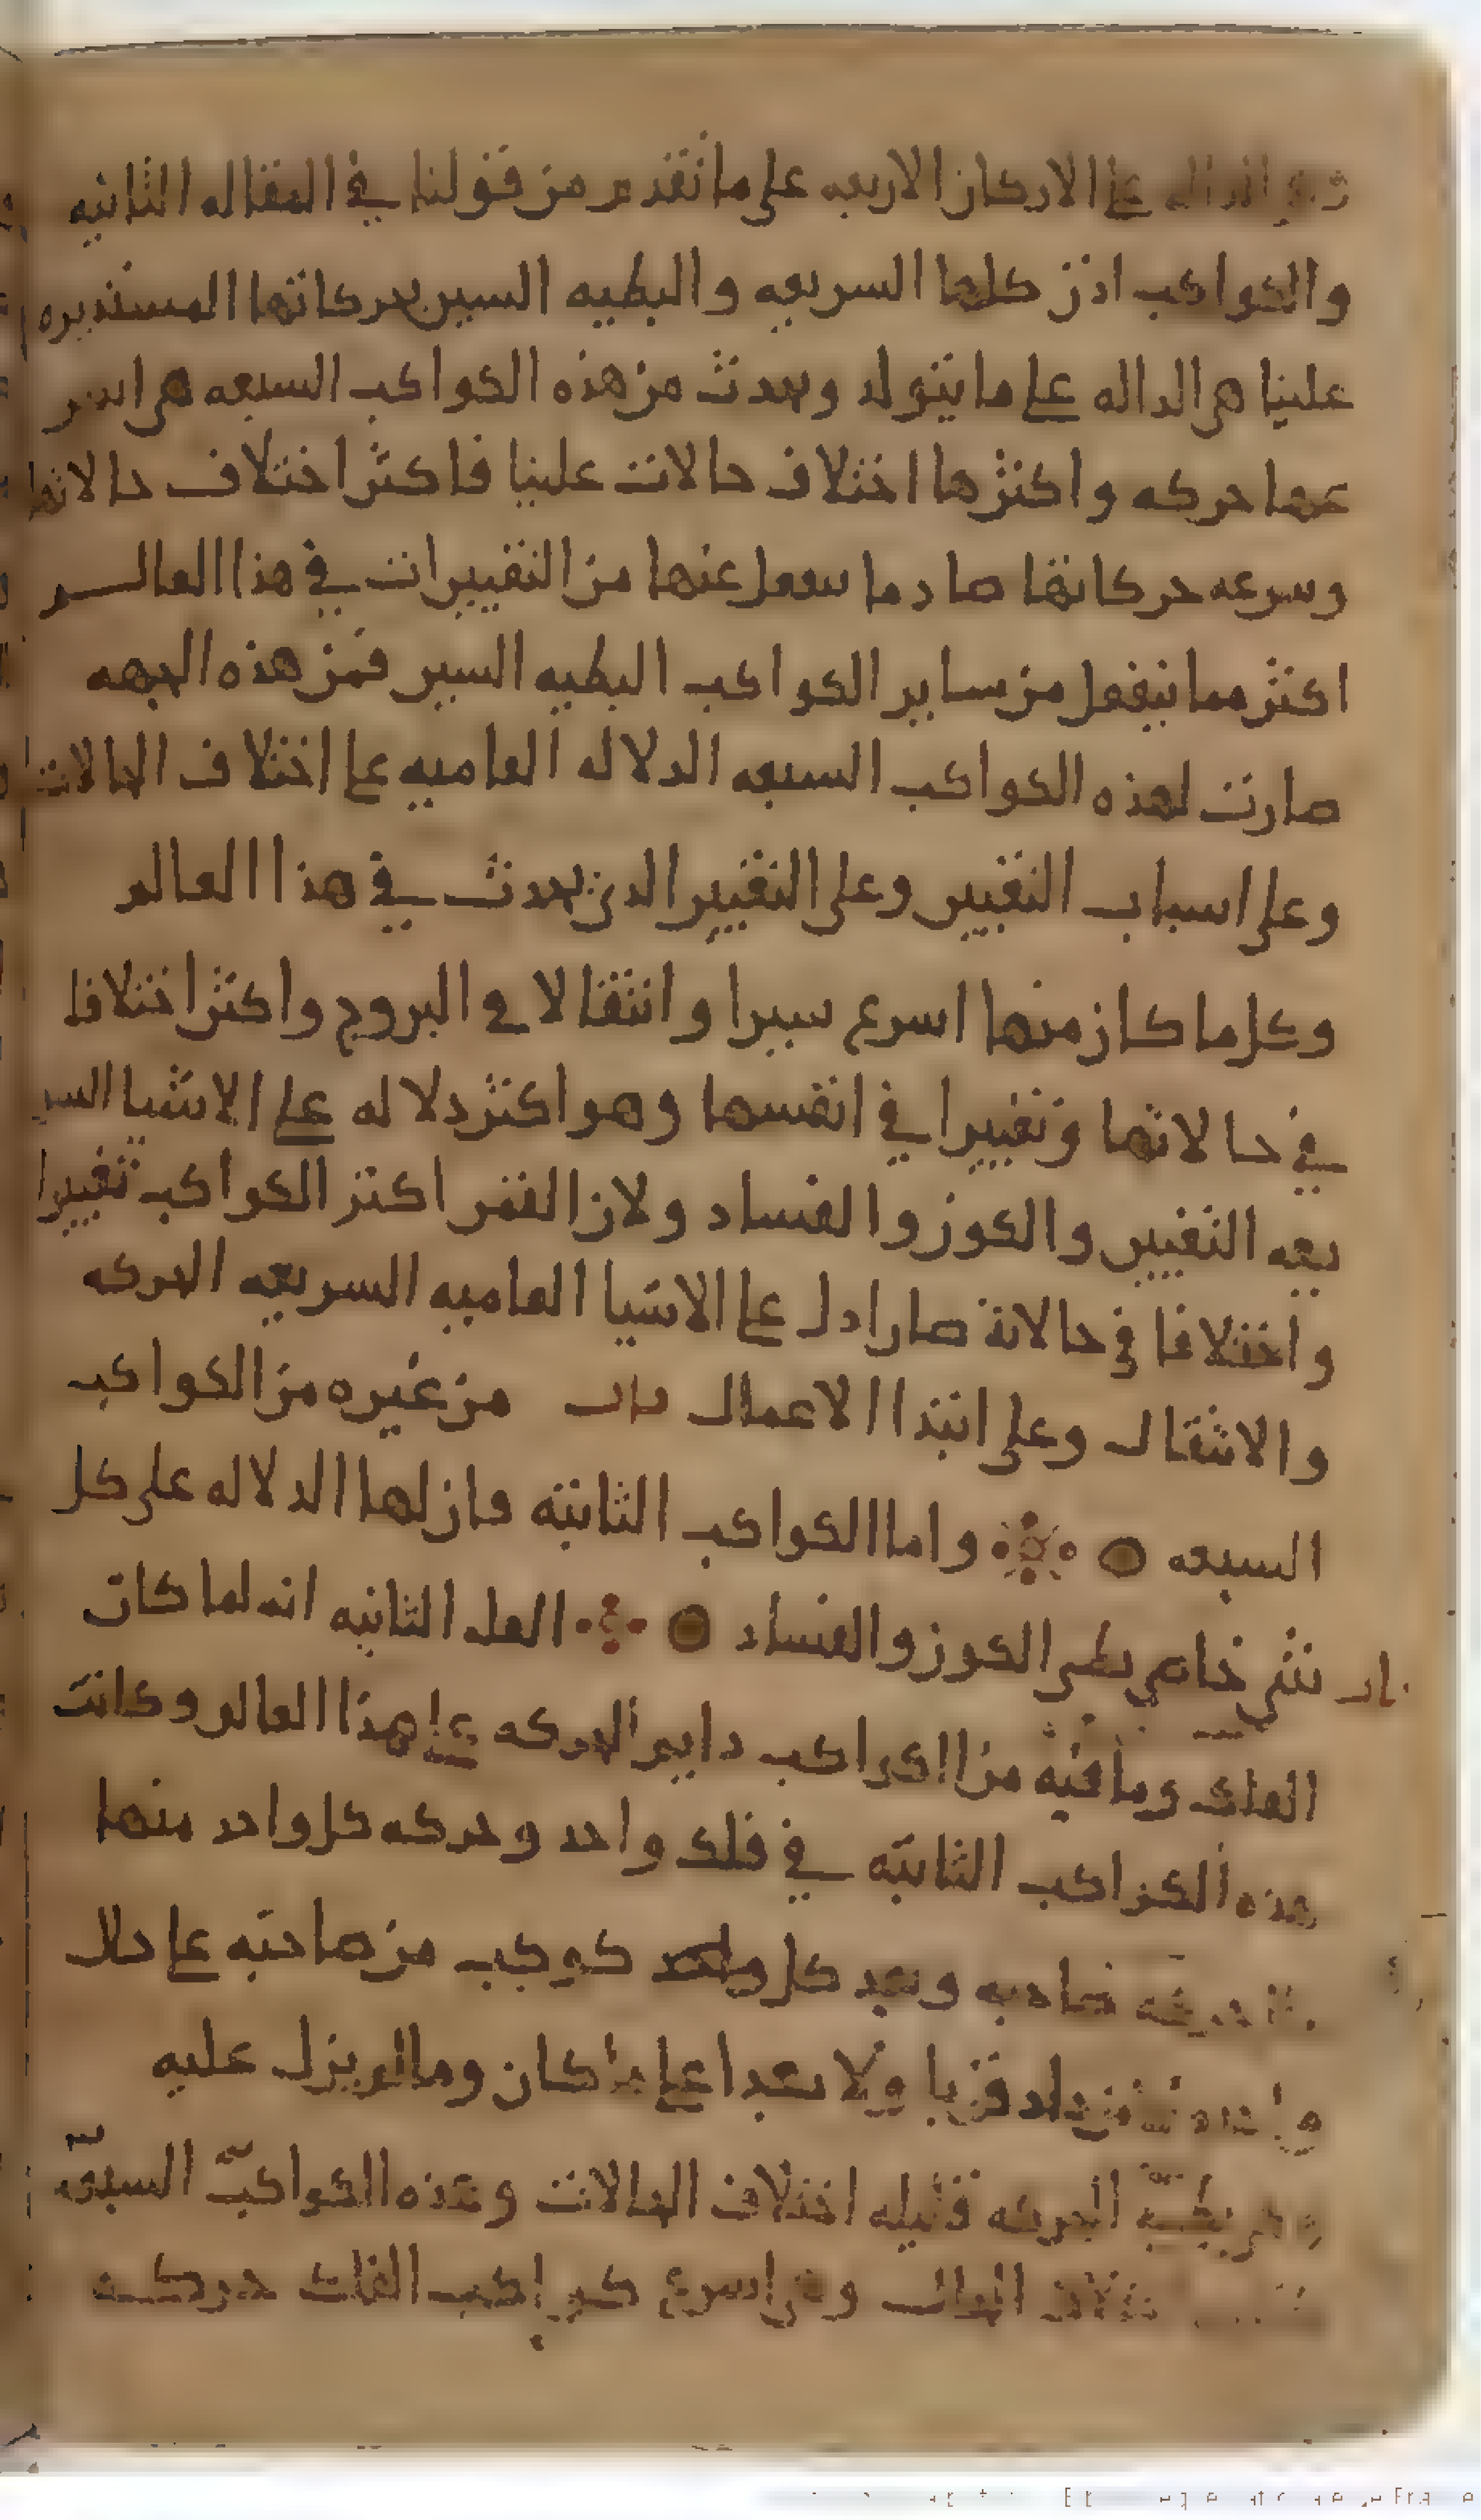 الداله على الاركان الاربعه على ما تقدم من قولنا في المقاله الثانيه
والكواكب اذن كلها السريعه والبطيه السير بحركاتها المستديره
علينا هي الداله على ما يتولد ويحدث من هذه الكواكب السبعه هي اسر
عها حركه واكثرها اختلاف حالات علينا فاكثر اختلاف حالاتها
وسرعه حركاتها صار ما ينفعل عنها من التغييرات في هذا العالم
اكثر مما ينفعل من ساير الكواكب البطيه السير فمن هذه الجهه
صارت لهذه الكواكب السبعه الدلاله العاميه على اختلاف الحالات
وعلى اسباب التغيير وعلى التغيير الذي يحدث في هذا العالم
وكل ما كان منها اسرع سيرا وانتقالا في البروج واكثر اختلافا
في حالاتها وتغييرا في انفسها وهو اكثر دلاله على الاشيا السر
يعه التغيير والكون والفساد ولان القمر اكثر الكواكب تغييرا
واختلافا في حالاته صار ادل على الاشيا العاميه السريعه الحركه
والانتقال وعلى ابتدا الاعمال من غيره من الكواكب
السبعه واما الكواكب الثابته فان لها الدلاله على كل
شي خاص بطي الكون والفساد العله الثانيه انه لما كان
الفلك وما فيه من الكواكب دايم الحركه على هذا العالم وكانت
هذه الكواكب الثابته في فلك واحد وحركه كل واحد منها
حركه صاحبه وبعد كل كوكب من صاحبه على حال
قربا ولا بعدا على ما كان وما لم يزل عليه
بطيه الحركه قليله اختلاف الحالات وهذه الكواكب السبعه
الحالات وهي اسرع كواكب الفلك حركه